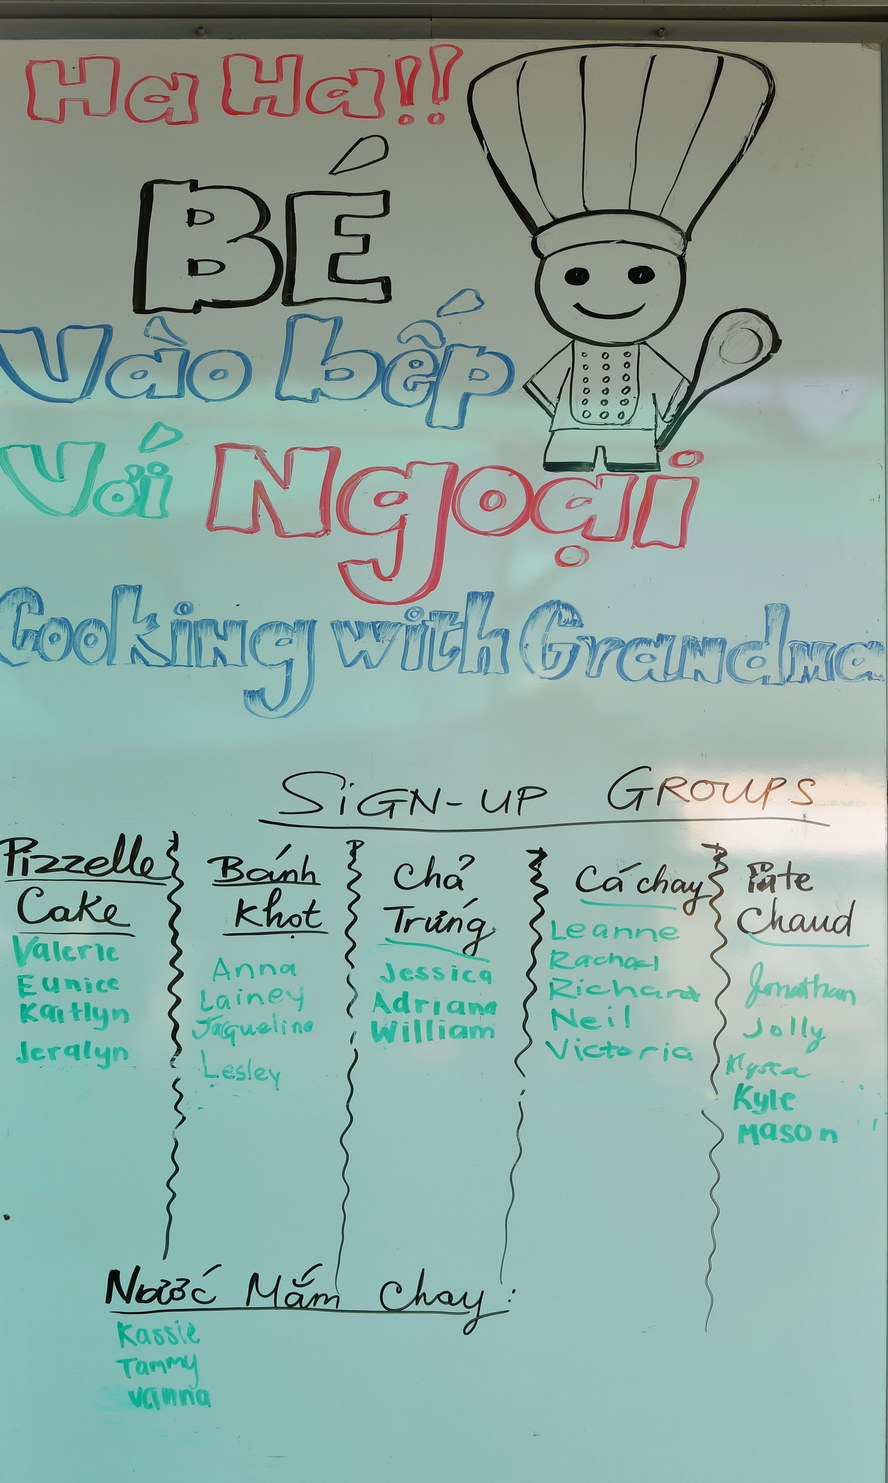 Ha Ha!!
BÉ
Vào bếp
Với Ngoại
Cooking with Grandma
SIGN-UP GROUPS
Pizzelle
Cake
Valerie
Eunice
Kaitlyn
Jeralyn
Bánh
Khọt
Anna
Lainey
Jaqueline
Lesley
Chả
Trứng
Jessica
Adriana
William
Cá chay
Leanne
Rachael
Richard
Neil
Victoria
Pate
Chaud
Jonathan
Jolly
Kyle
Mason
Nước Mắm Chay:
Kassie
Tammy
Vanna